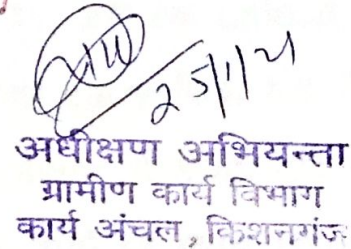 25/1/21
अधीक्षण अभियन्ता
ग्रामीण कार्य विभाग
कार्य अंचल, किशनगंज